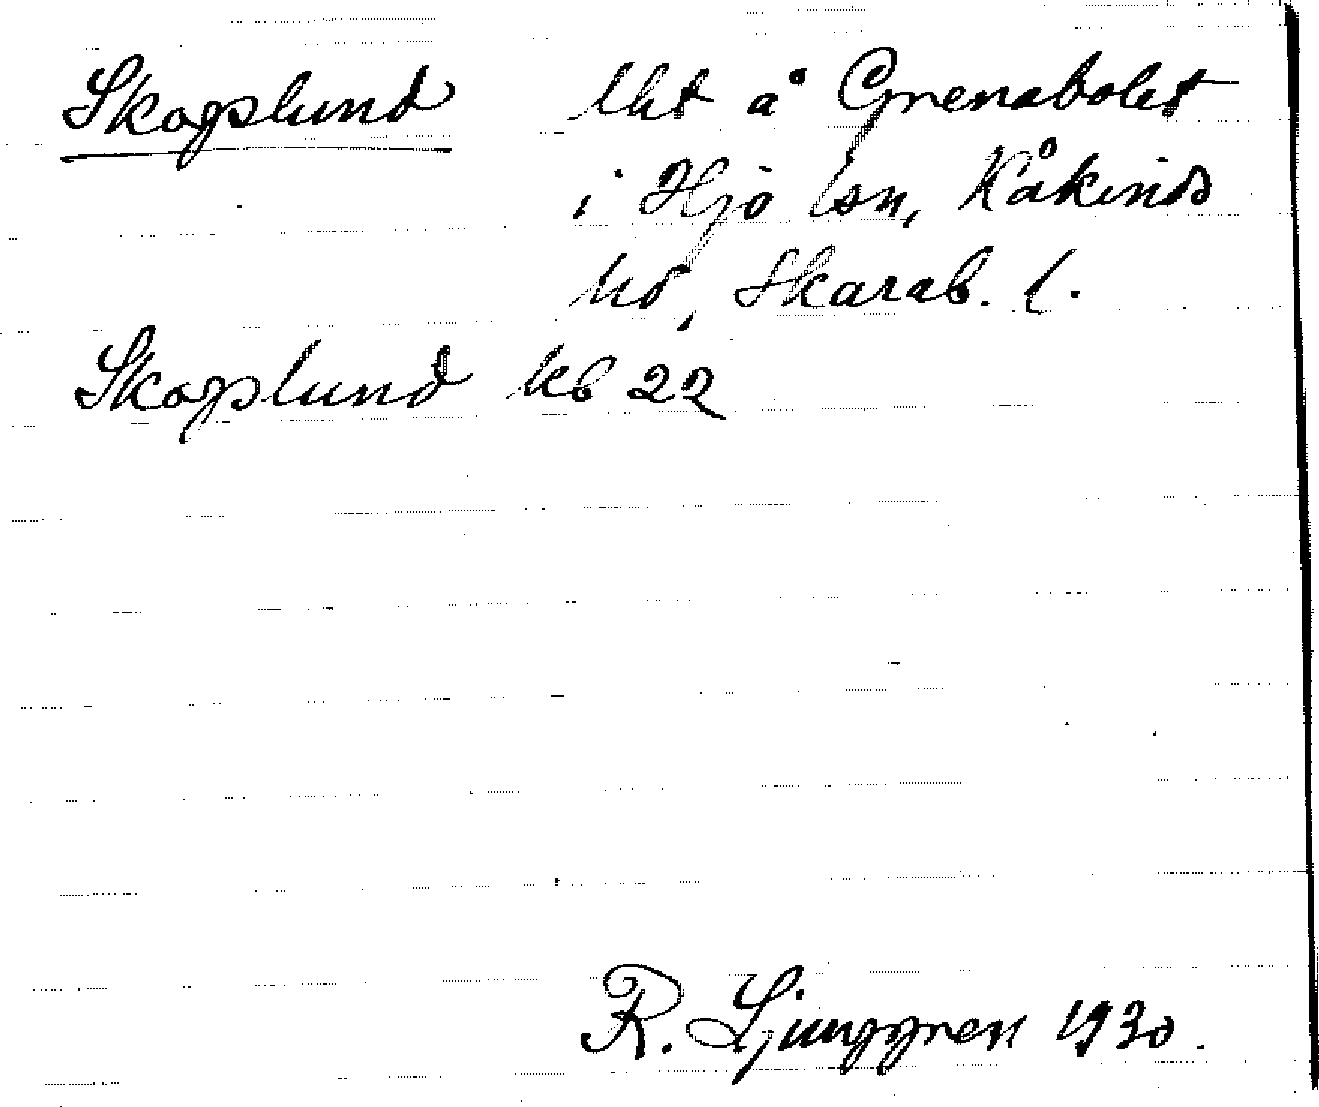 Skogslund lht å Grenabolet
i Hjo lsn, Kåkinds
hd, Skarab. l.
Skogslund kb 22
R. Ljunggren 1930.